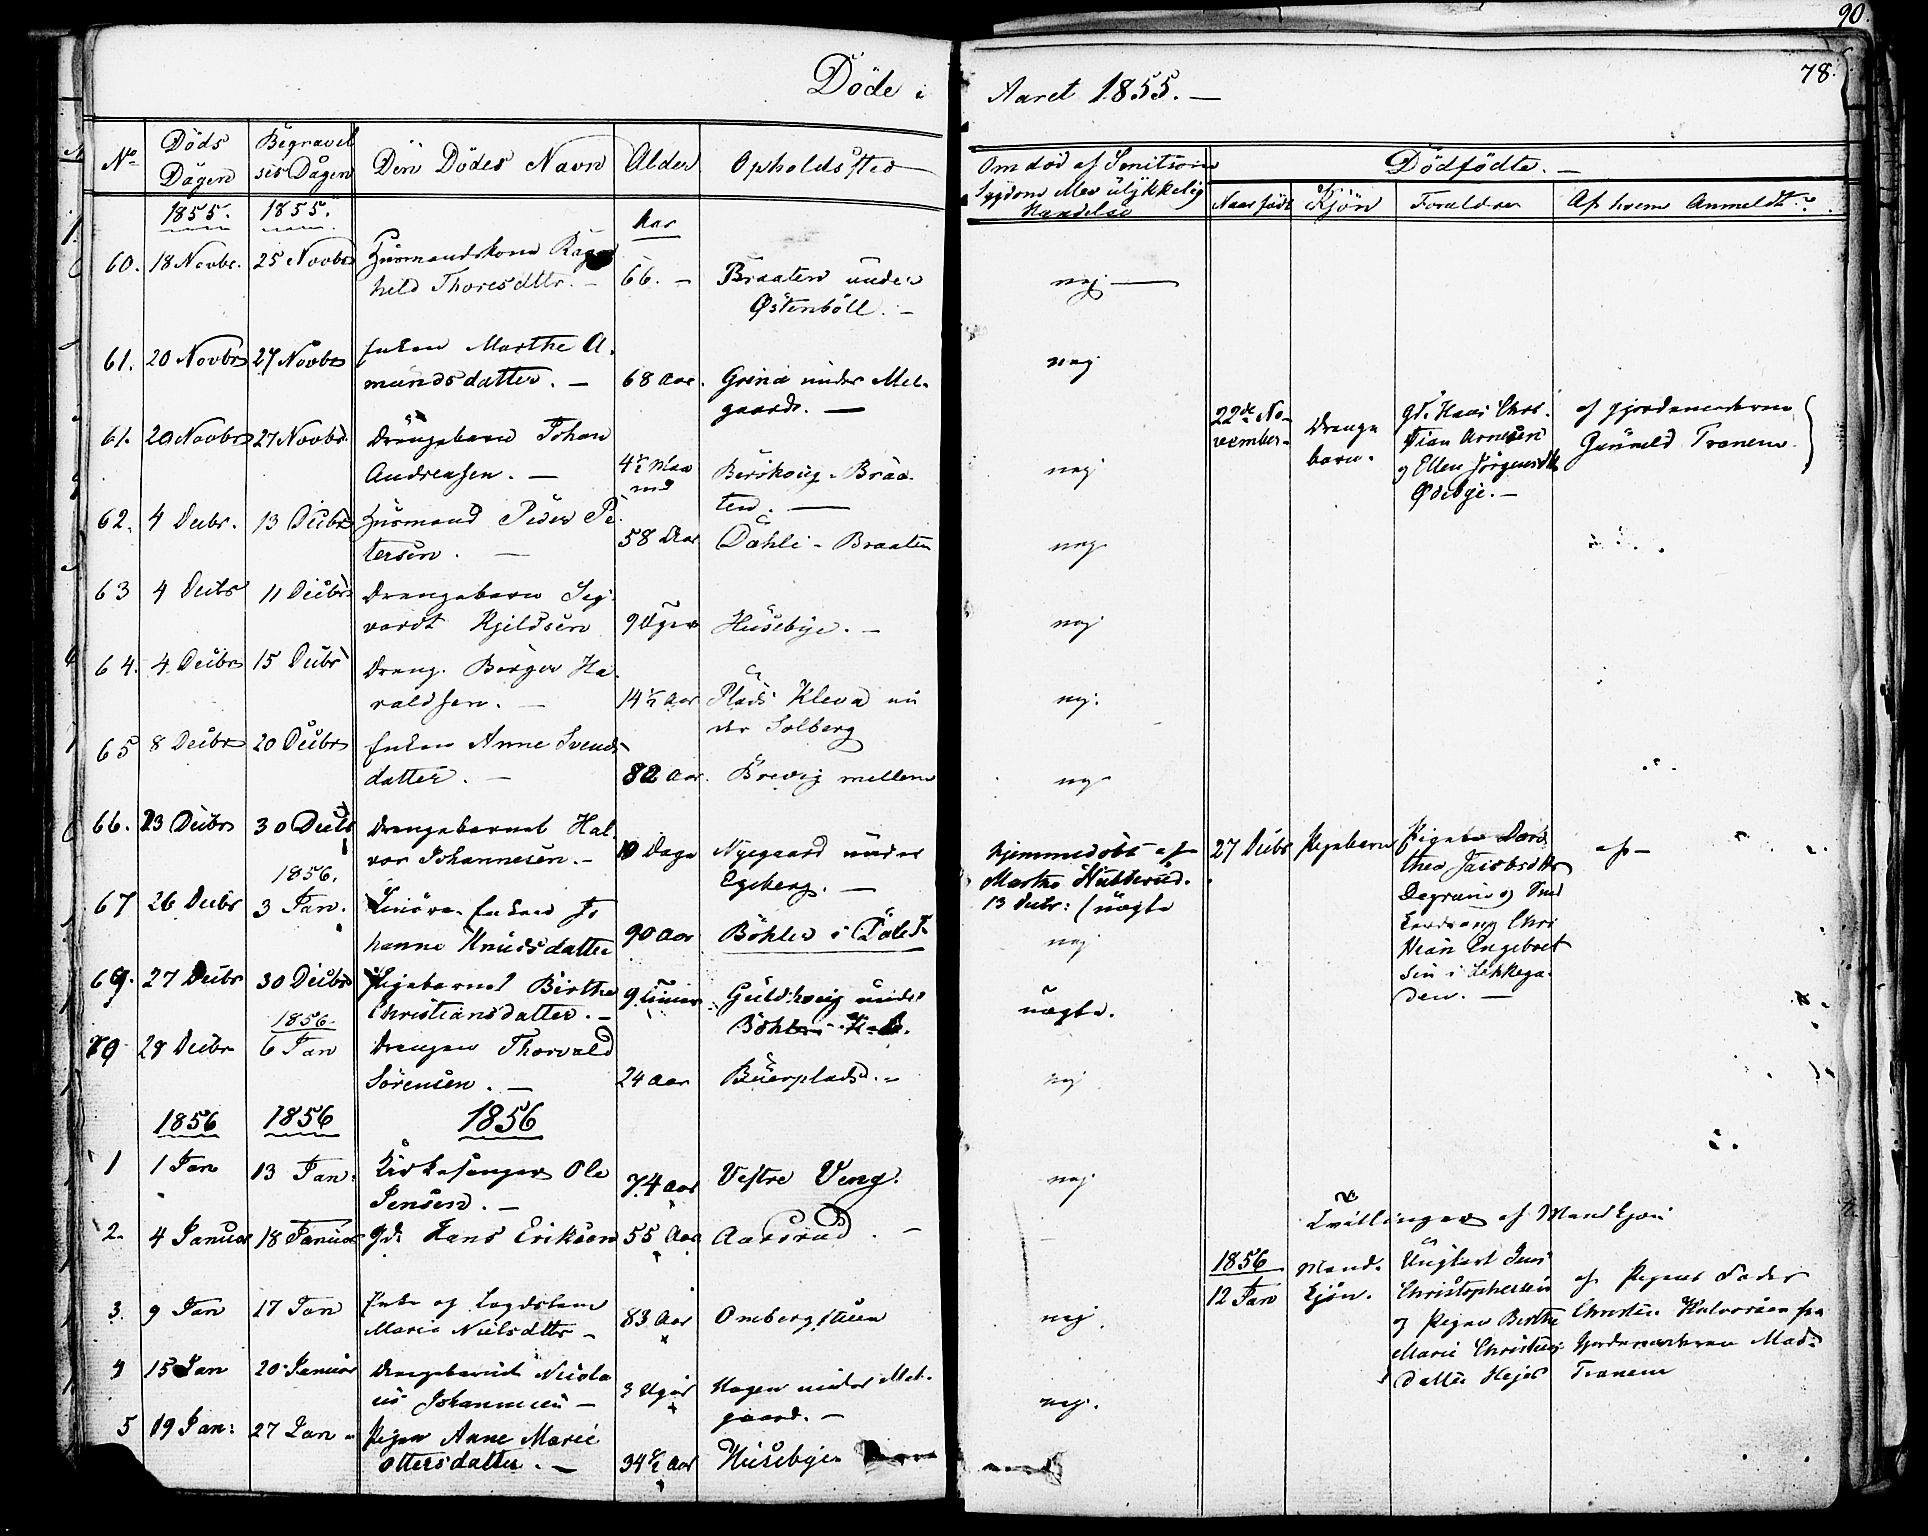 90.
78.
Döde i Aaret 1855. —
No Döds Dagen Begravelsis Dagen Den Dödes Navn Alder Opholdssted
Om död af Smitsom Sygdom eller ulykkelig Hændelse
Dödfödte. —
Naar født Kjön Forældre Af hvem Anmeldt
1855. 1855. Aar
60. 18 Novbr. 25 Novbr Huusmandskone Rag
hild Thoresdttr. — 66. — Braaten under
Østenböll. — nej —
61. 20 Novbr 27 Novbr Enken Marthe A.
mundsdatter. — 68 Aar. Grina under Mel-
gaard. — nej
61. 20 Novbr 27 Novbr. Drengebarn Johan
Andreasen. — 4½ Maa
ned Berskoug-Braa-
ten. — nej
22de No-
vember. Drenge
barn. gd. Hans Chris-
tian Arnesen
og Ellen Jörgensdtr
Ødebye. — af Gjordemoderen
Gunnild Tranem
62. 4 Decbr. 13 Decbr Huusmand Peder Pe
tersen. — 58 Aar Dæhli-Braaten nej
63 4 Decbr 11 Decbr. Drengebarn Sig-
vardt Kjeldsen 9 Uger Husebye. — nej
64. 4 Decbr 15 Decbr Dreng. Börger Ha
raldsen. — 14½ Aar Plads Kleva un
der Solberg nej.
65 8 Decbr 20 Decbr Enken Anne Svends-
datter. — 82 Aar. Brevig mellem nej
66. 23 Decbr 30 Decbr Drengebarnet Hal
vor Johannesen. — 10 Dage Nyegaard under
Egeberg. — Hjemmedöbt af
Marthe
13 Decbr: (uægte
27 Decbr Pigebarn Pigen Doro
thea Jacobsdtr
og
Chri
stian Engebret
sen i Lökkega-
den. — af —
1856.
67 26 Decbr 3 Jan. Enken Jo
hanne Knudsdatter 90 Aar Böhler i nej
69. 27 Decbr 30 Decbr Pigebarnet Birthe
Christiansdatter. — 9 timer Guldhoug under
Böhler uægte.
1856.
70 28 Decbr 6 Jan Drengen Thorvald
Sörensen. — 24 Aar Buerplads. — nej
1856 1856 1856
1 1 Jan 13 Jan. Kirkesanger Ole
Jensen. — 74 Aar Vestre Veng. nej
2. 4 Januar 18 Januar gd. Hans Eriksen 55 Aar Aasrud. —
Tvillinger af Mandkjön
1856
12 Jan Mand-
kjön. Ungkarl Jens
Christophersen
og Pigen Berthe
Marie Christens-
datter Hejer af Pigens Fader
Christen Halvorsen fra
Gjordemoderen Mad.
Tranem
3. 9 Jan 17 Jan Enke og Lægdslem
Marie Nielsdttr — 83 Aar Ombergstuen nej.
4 15 Jan 20 Januar Drengebarnet Nicola
us Johannesen — 3 Uger Hagen under Mel-
gaard. — nej.
5 19 Jan: 27 Jan. Pigen Anne Marie
Ottersdatter. — 34½ Aar Husebye